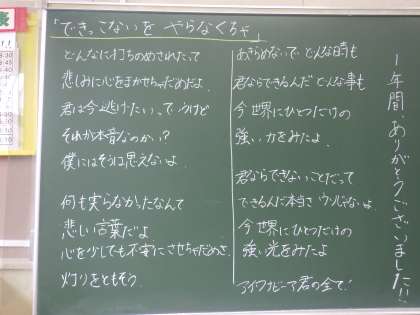 「できっこないを やらなくちゃ」
どんなに打ちのめされたって
悲しみに心をまかせちゃだめだよ
君は今逃げたいっていうけど
それが本音なのかい？
僕にはそうは思えないよ
何も実らなかったなんて
悲しい言葉だよ
心を少しでも不安にさせちゃだめさ
灯りをともそう
あきらめないで どんな時も
君ならできるんだ どんな事も
今 世界にひとつだけの
強い力をみたよ
君ならできないことだって
できるんだ本当さ ウソじゃないよ
今 世界にひとつだけの
強い光をみたよ
アイワナビーア君の全て!
1年間、ありがとうございました!!